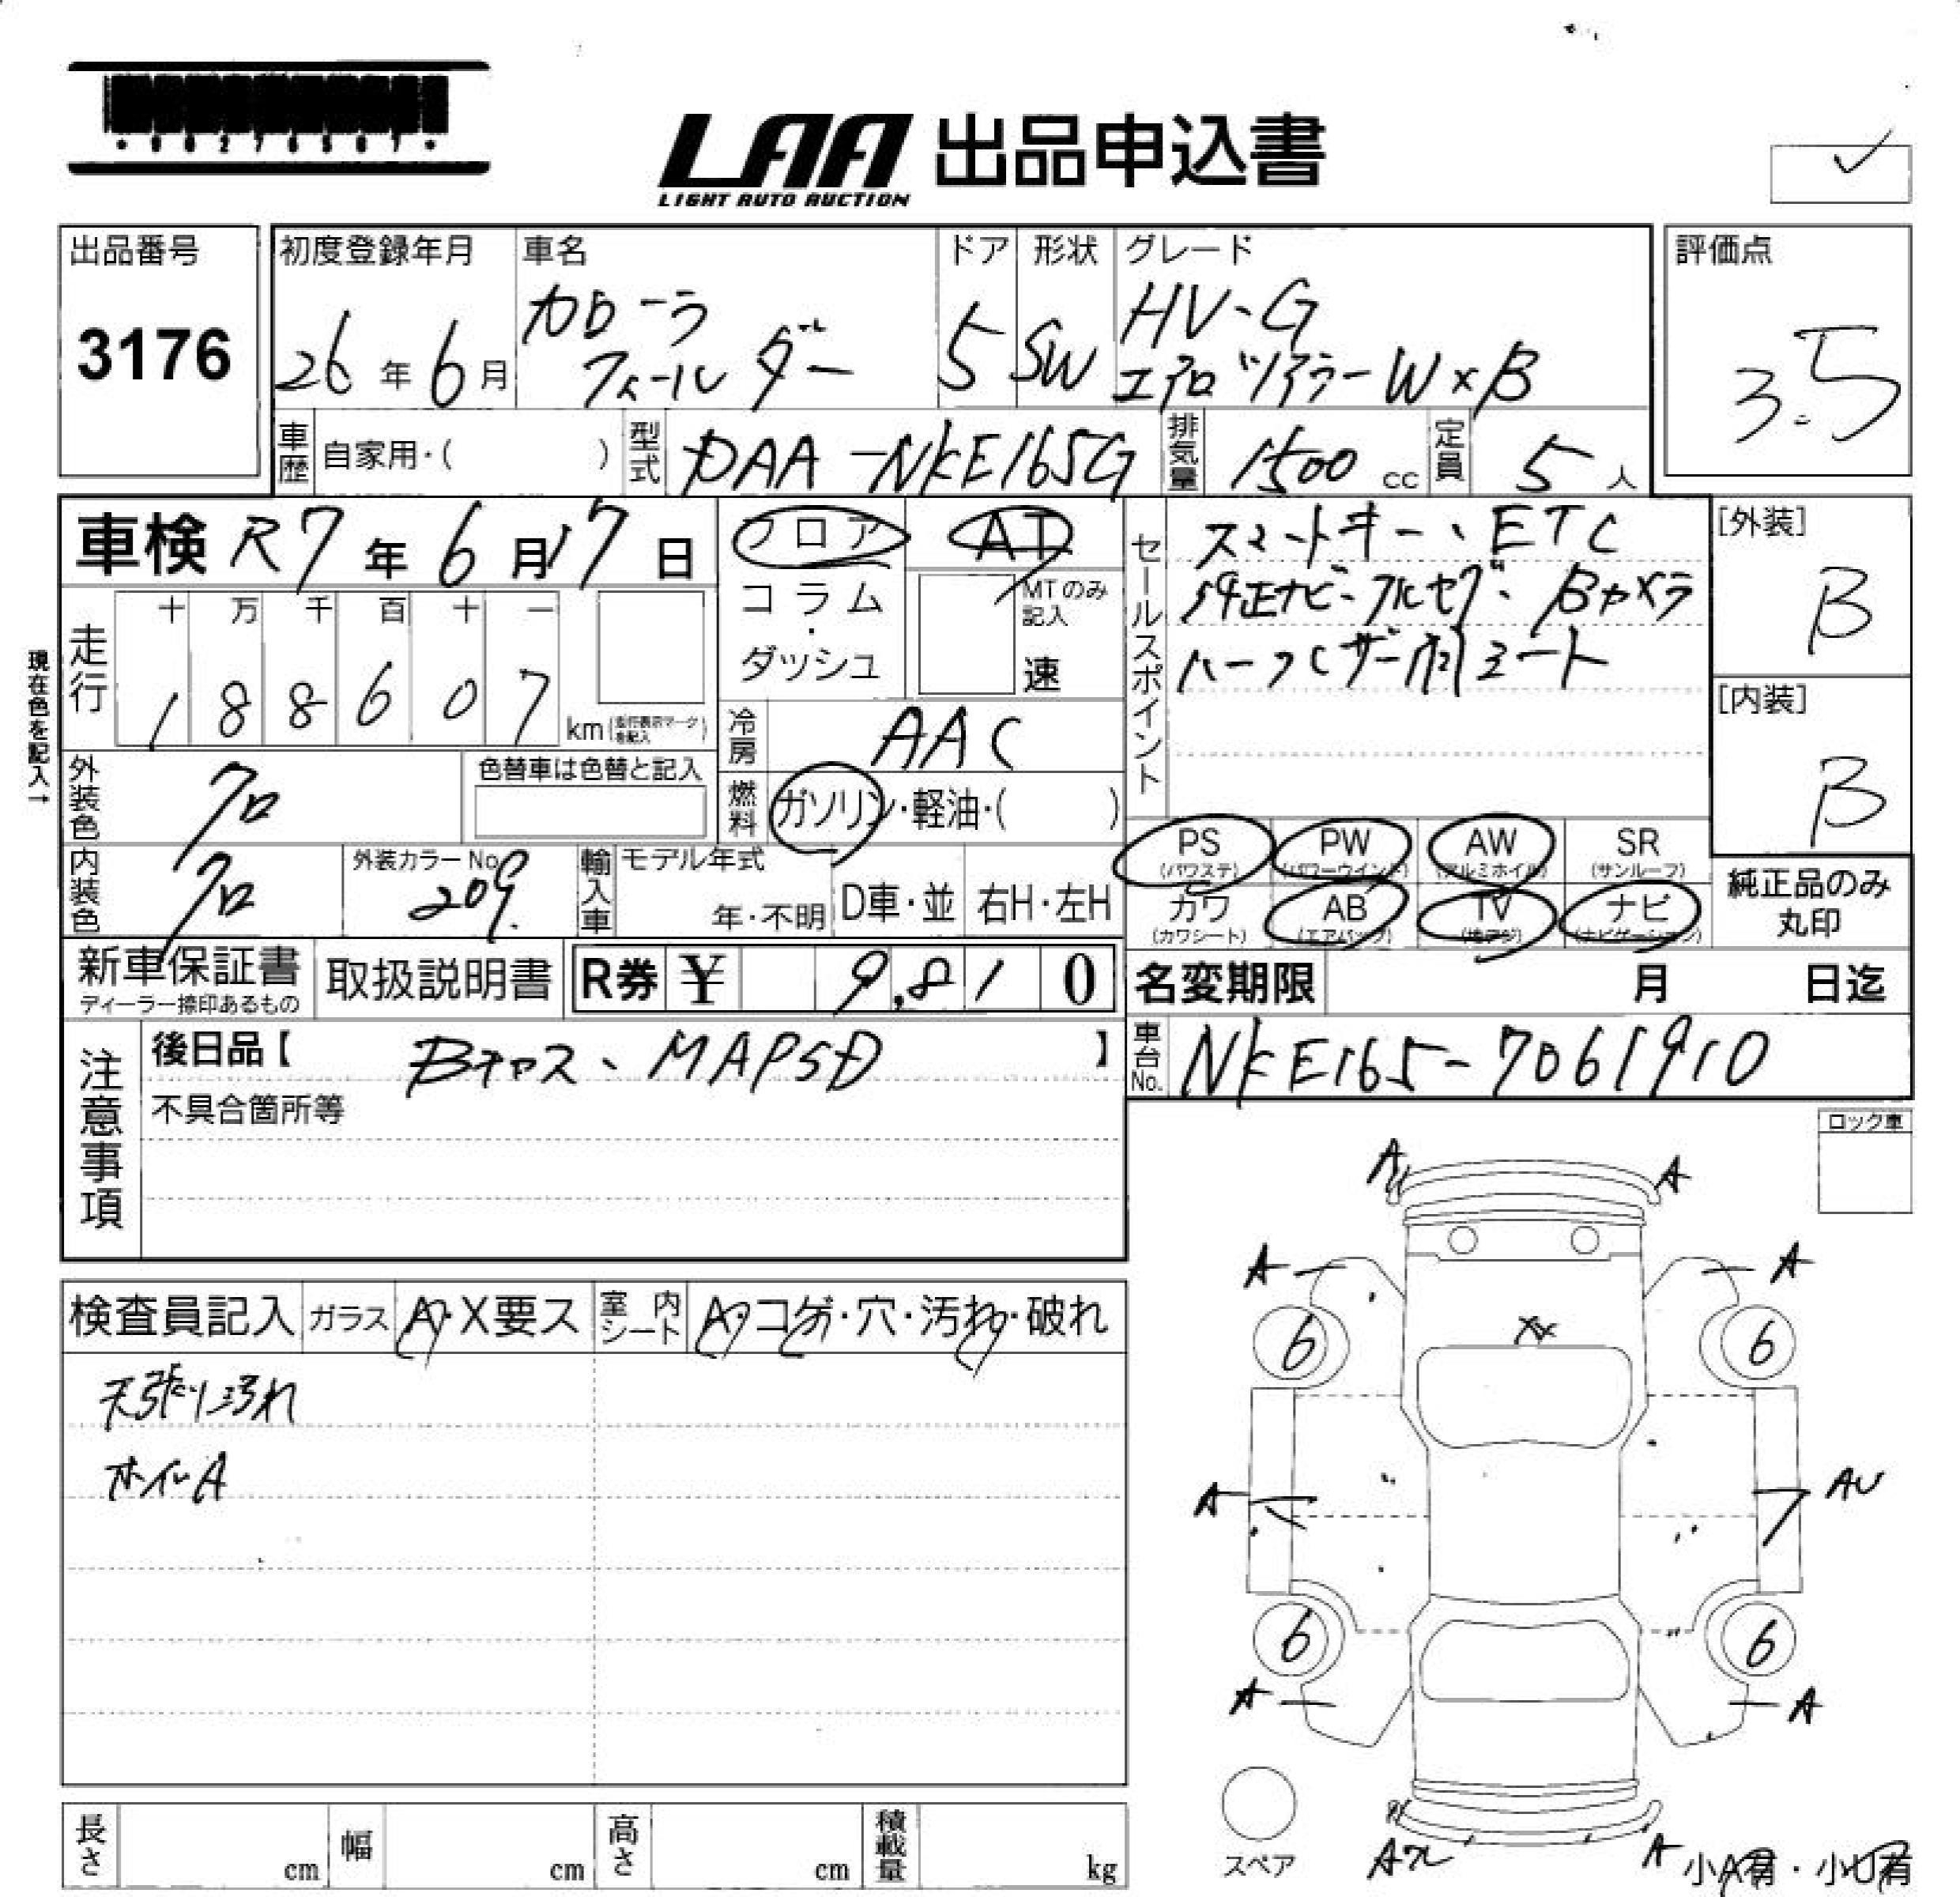 ・00276507・
LAA 出品申込書
LIGHT AUTO AUCTION
出品番号
3176
初度登録年月
26年6月
車名
カローラ
フィールダー
ドア
5
形状
SW
グレード
HV-G
エアロツアラーW×B
評価点
3.5
車歴
自家用・( )
型式
DAA-NKE165G
排気量
1500 cc
定員
5人
車検 R7年6月17日
フロア
コラム
・
ダッシュ
AT
MTのみ
記入
速
セールスポイント
スマートキー、ETC
純正ナビ・フルセグ・Bカメラ
ハーフレザー調シート
[外装]
B
[内装]
B
現在色を記入→
走行
十 万 千 百 十 一
1 8 8 6 0 7
km(走行表示マークを記入)
冷房
AAC
外装色
クロ
色替車は色替と記入
燃料
ガソリン・軽油・( )
内装色
クロ
外装カラーNo.
209
輸入車
モデル年式
年・不明
D車・並
右H・左H
PS
(パワステ)
PW
(パワーウインド)
AW
(アルミホイル)
SR
(サンルーフ)
カワ
(カワシート)
AB
(エアバック)
TV
(地デジ)
ナビ
(ナビゲーション)
純正品のみ
丸印
新車保証書
ディーラー捺印あるもの
取扱説明書
R券 ¥ 9,810
名変期限 月 日迄
注意事項
後日品【 Bケース、MAPSD 】
不具合箇所等
車台No.
NKE165-7061910
ロック車
検査員記入
ガラス
A・X要ス
室内シート
A・コゲ・穴・汚れ・破れ
天張り汚れ
ホイルA
A A
A A
XX
6 6
A AU
6 6
A A
スペア
A
小A有・小U有
長さ cm
幅 cm
高さ cm
積載量 kg